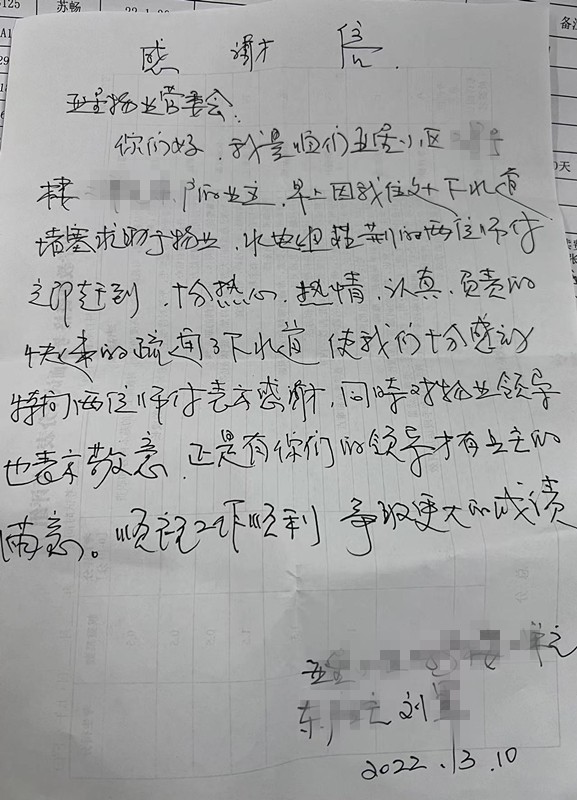 125 苏畅 22.1.20 备注
感谢信
亚星物业管委会:
你们好,我是咱们亚星小区
栋 户的业主,早上因我住处下水道
堵塞求助于物业,水电组 的两位师付
立即赶到,十分热心、热情、认真、负责的
快速的疏通了下水道 使我们十分感动
特向两位师付表示感谢,同时对物业领导
也表示敬意,正是有你们的领导才有业主的
满意。顺祝工作顺利 争取更大的成绩
亚星 单元
东户业主 刘
2022.3.10